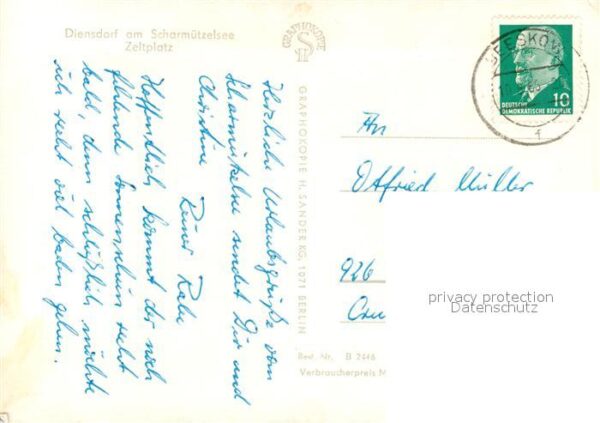 Diensdorf am Scharmützelsee
Zeltplatz
Herzliche Urlaubsgrüße vom
Scharmützelsee sendet Dir und
Christine
Rainer Rabe
Hoffentlich kommt der noch
fehlende Sonnenschein recht
bald, denn schließlich möchte
ich recht viel baden gehen.
GRAPHOKOPIE
GRAPHOKOPIE H. SANDER KG, 1071 BERLIN
Best. Nr. B 2446
Verbraucherpreis M
BEESKOW
DEUTSCHE
DEMOKRATISCHE REPUBLIK
10
1
An
Otfried Müller
926
privacy protection
Datenschutz